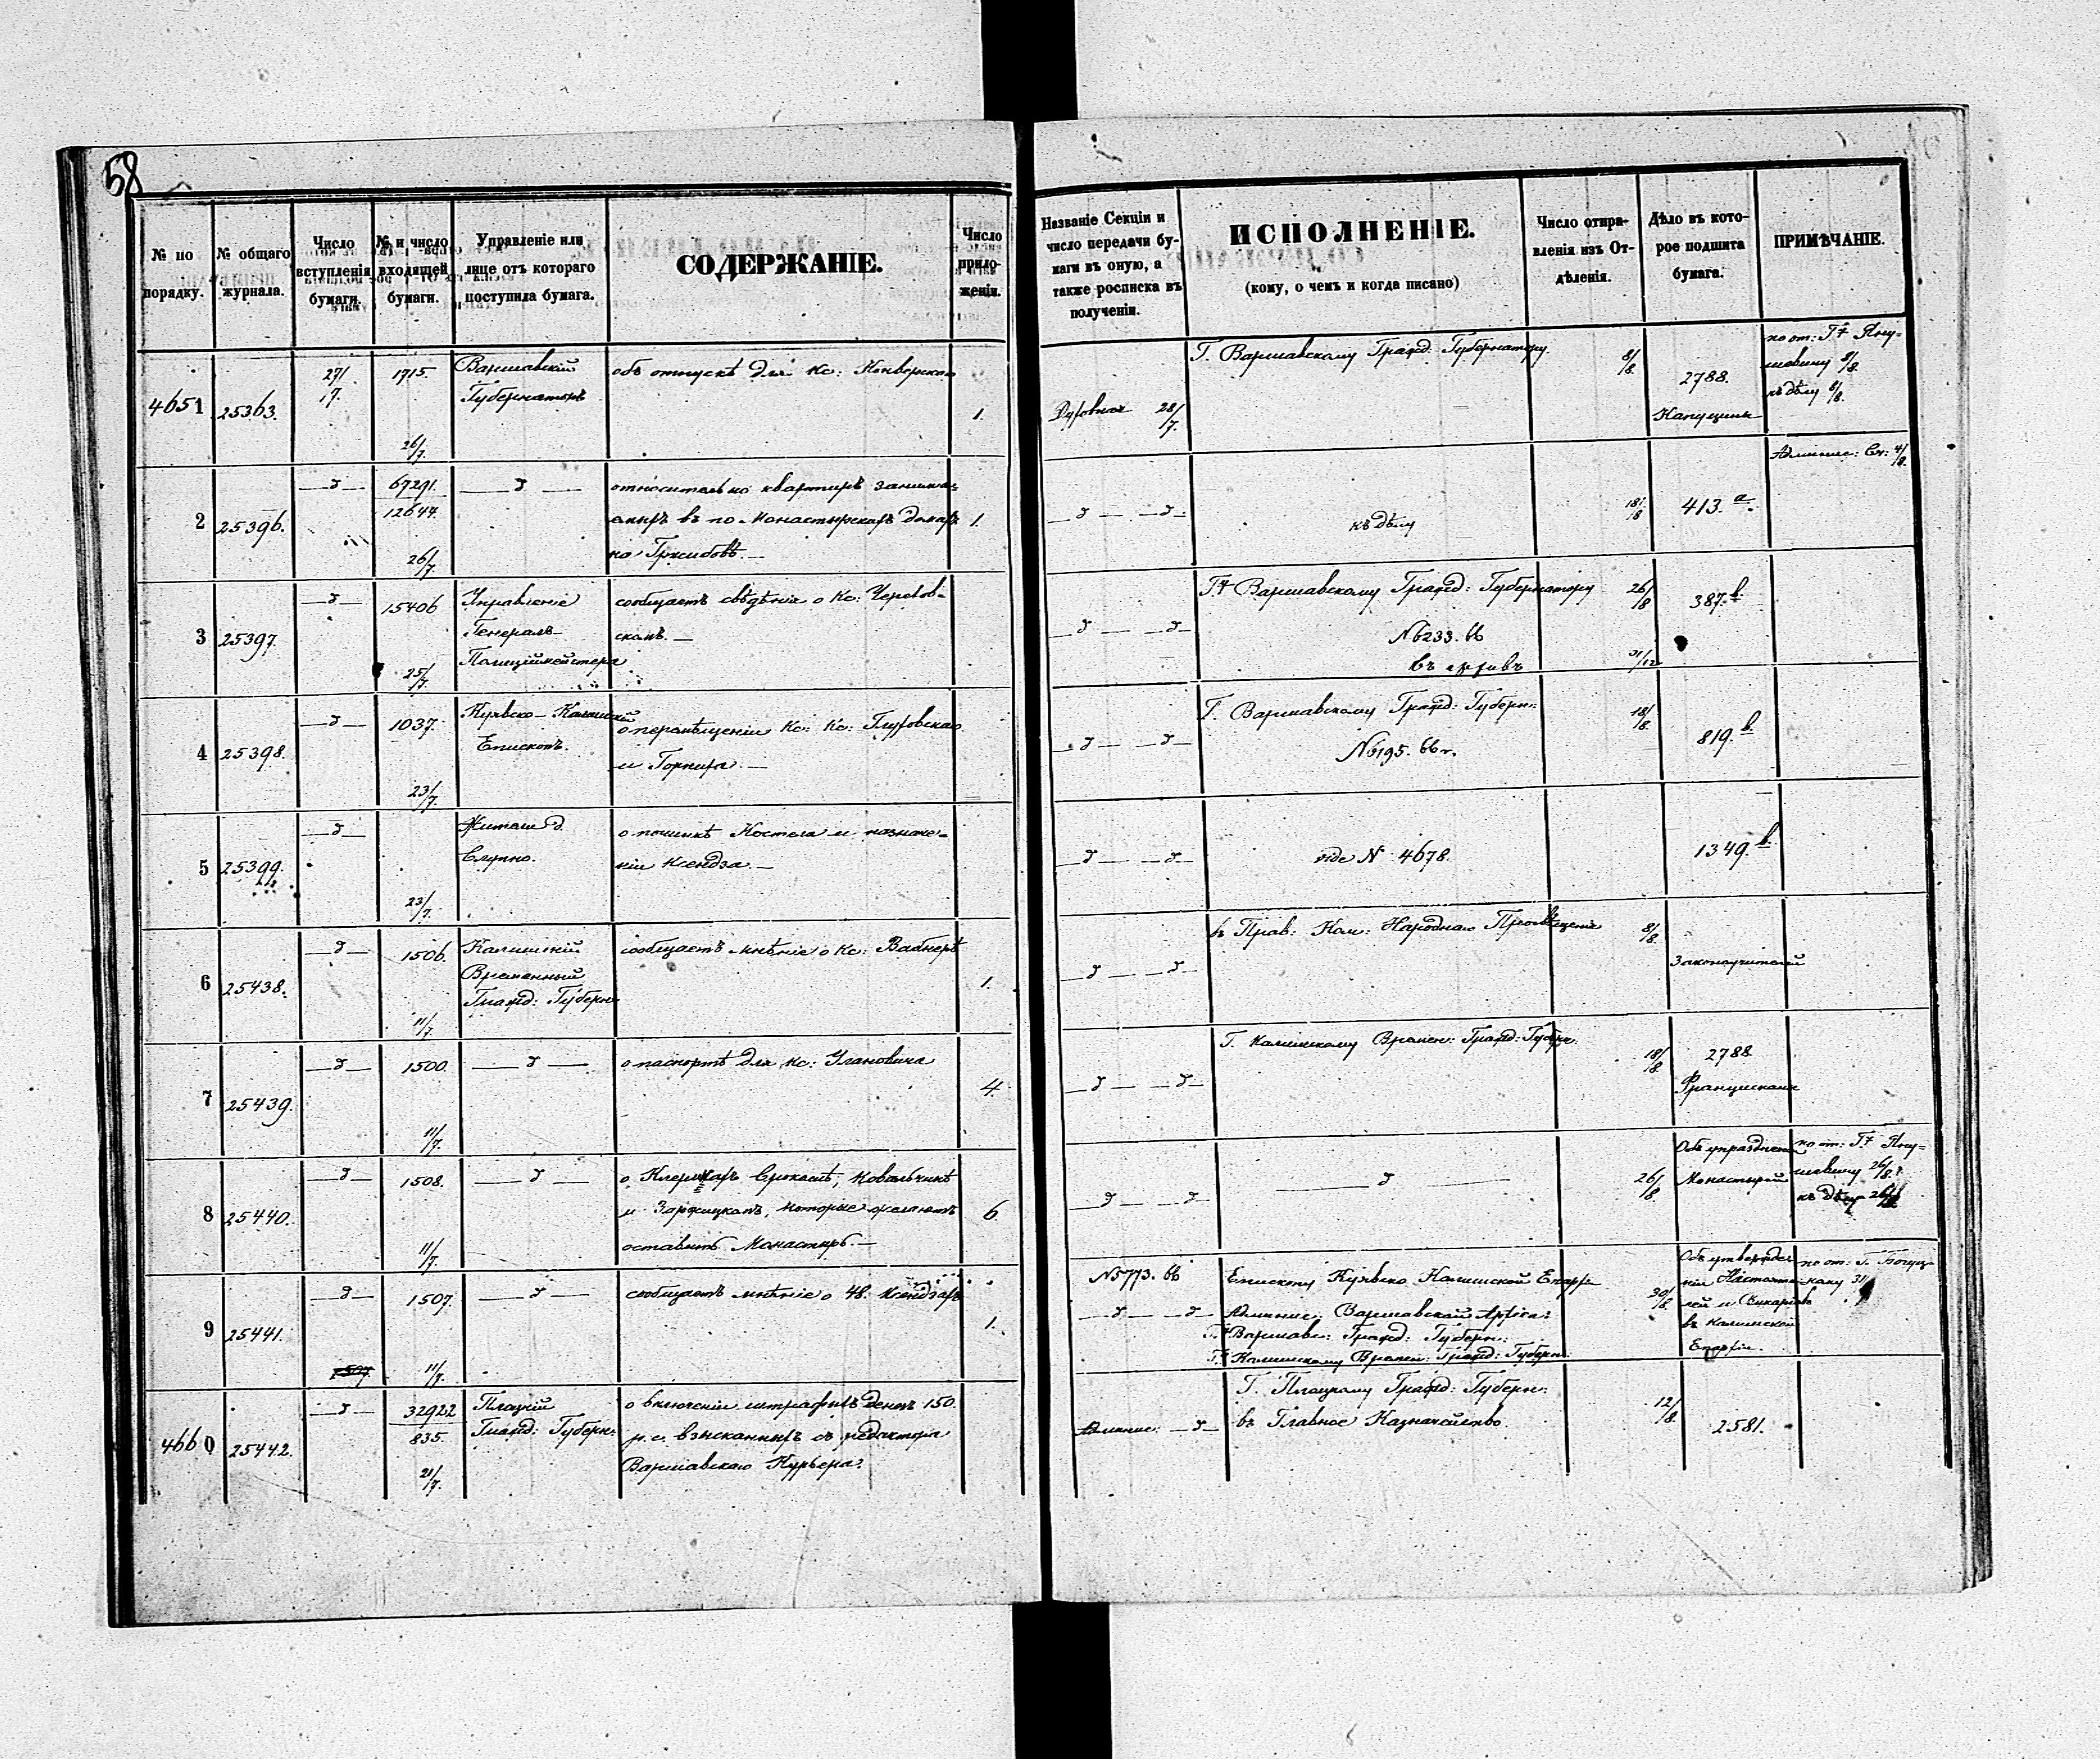 58
№ по порядку.
№ общаго журнала.
Число вступленія бумаги.
№ и число входящей бумаги.
Управленіе или лице отъ котораго поступила бумага.
СОДЕРЖАНІЕ.
Число приложеній.
Названіе Секціи и число передачи бумаги въ оную, а также росписка въ полученіи.
ИСПОЛНЕНІЕ.
(кому, о чемъ и когда писано)
Число отправленія изъ Отдѣленія.
Дѣло въ которое подшита бумага.
ПРИМѢЧАНІЕ.
4651 25363. 27/7. 1715. 26/7.
Варшавскій
Губернаторъ
объ отпускѣ для Кс:
1.
Духовная 28/7.
Г. Варшавскому Гражд. Губернатору.
8/8.
2788.
Капуцины
по от: Гну Яну-
шевичу 8/8.
къ дѣлу 8/8.
2 25396. 67291. 12644. 26/7
относительно квартиръ занимае-
мыхъ въ по-Монастырскихъ домахъ
на Гржибовѣ.—
1.
къ дѣлу
18/8
413.а
3 25397. 15406 25/7.
Управленіе
Генералъ-
Полиціймейстера
сообщаетъ свѣдѣнія о Кс:
скомъ.—
Гну Варшавскому Гражд: Губернатору
№ 6233. 66
въ архивъ
26/8
31/12
387.b
4 25398. 1037. 23/7.
Куявско-Калишскій
Епископъ.
о перемѣщеніи Кс: Кс: Глуховскаго
и
Г. Варшавскому Гражд: Губерн:
№ 6195. 66 г.
18/8.
819.b.
5 25399. 23/7.
Жители д.
Слупно.
о починкѣ Костела и назначе-
ніи Ксендза.—
vide N 4678.
1349.b.
6 25438. 1506. 11/7.
Калишскій
Временный
Гражд: Губерн:
сообщаетъ мнѣніе о Кс: Вабнерѣ
1.
въ Прав: Ком: Народнаго Просвѣщенія
8/8.
Законоучителей
7 25439. 1500. 11/7.
о паспортѣ для Кс: Улановича
4.
Г. Калишскому Времен: Гражд: Губерн:
18/8.
2788
Францискане
8 25440. 1508. 11/7.
о Клерикахъ
и которые желаютъ
оставить Монастырь.—
6.
26/8
Объ упраздненіи
Монастырей
по от: Гну Яну-
шевичу 26/8.
къ дѣлу 26/8
9 25441. 1507. 11/7.
сообщаетъ мнѣніе о 48. Ксендзахъ
1.
№ 5773. 66
Епископу Куявско Калишской Епархіи
Админис: Варшавской Архіеп:
Гну Варшавс: Гражд: Губерн:
Гну Калишскому Времен: Гражд: Губерн:
30/8.
Объ утвержде-
ніи Настояте-
лей и Викаріевъ
въ Калишской
Епархіи.
по от: Г.
4660 25442. 32922 835. 21/7.
Плоцкій
Гражд: Губерн:
о внесеніи штрафныхъ денегъ 150.
р. с. взысканныхъ съ редактора
Варшавскаго Курьера.
Админис:
Г. Плоцкому Гражд: Губерн:
въ Главное Казначейство
12/8.
2581.